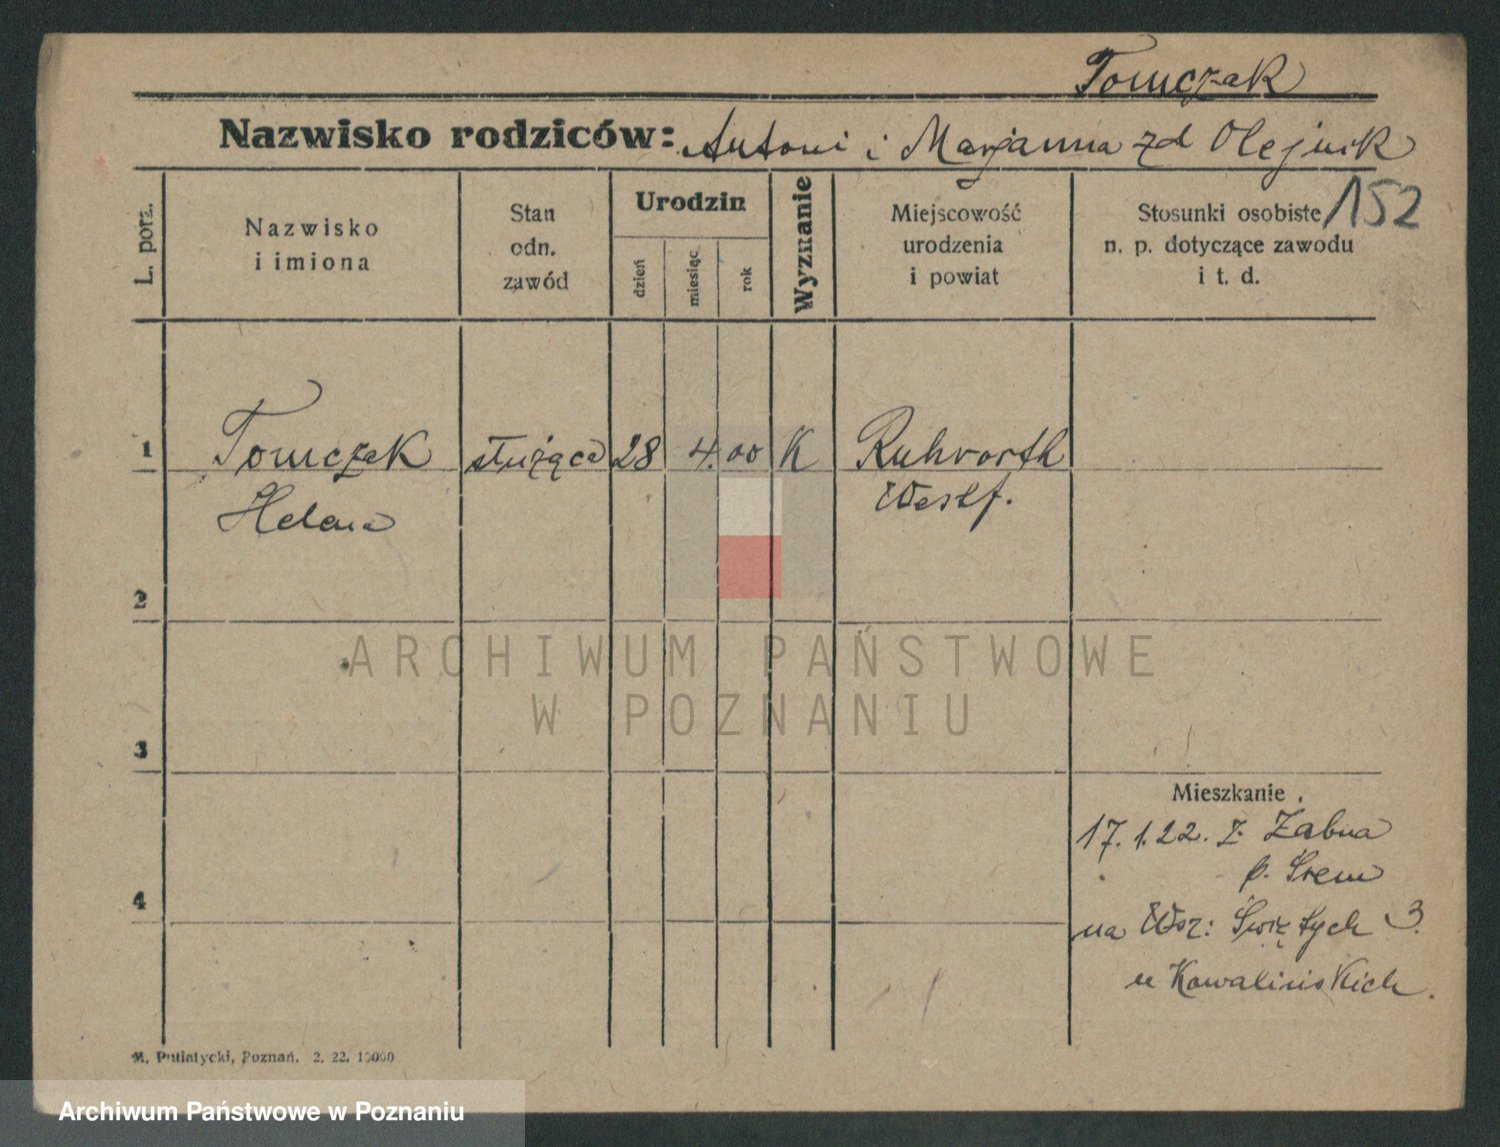 Tomczak
Nazwisko rodziców: Antoni i Marjanna zd Olejnik
152
L. porz.
Nazwisko
i imiona
Stan
odn.
zawód
Urodzin
dzień
miesiąc
rok
Wyznanie
Miejscowość
urodzenia
i powiat
Stosunki osobiste
n. p. dotyczące zawodu
i t. d.
1 Tomczak służąca 28 4. 00 K Ruhrorth
Helena Westf.
2
3
4
Mieszkanie
17. 1. 22. z Żabna
p. Śrem
na Wsz: Świętych 3.
u Kowalińskich.
M. Putiatycki, Poznań. 2. 22. 10000
ARCHIWUM PAŃSTWOWE
W POZNANIU
Archiwum Państwowe w Poznaniu